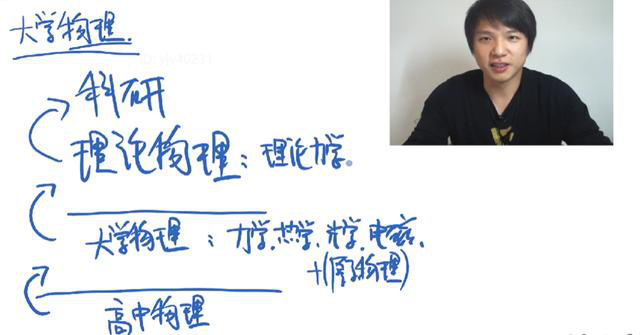 大学物理.
ID: yjy40231
科研
理论物理：理论力学。
大学物理：力学、热学、光学、电磁、
+(原子物理)
高中物理